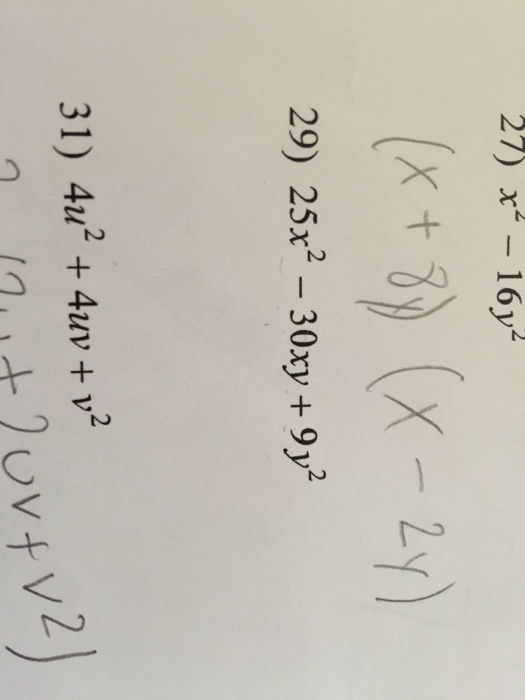 27) x² − 16y²
(x + 8y) (x − 2y)
29) 25x² − 30xy + 9y²
31) 4u² + 4uv + v²
2uv + v2)